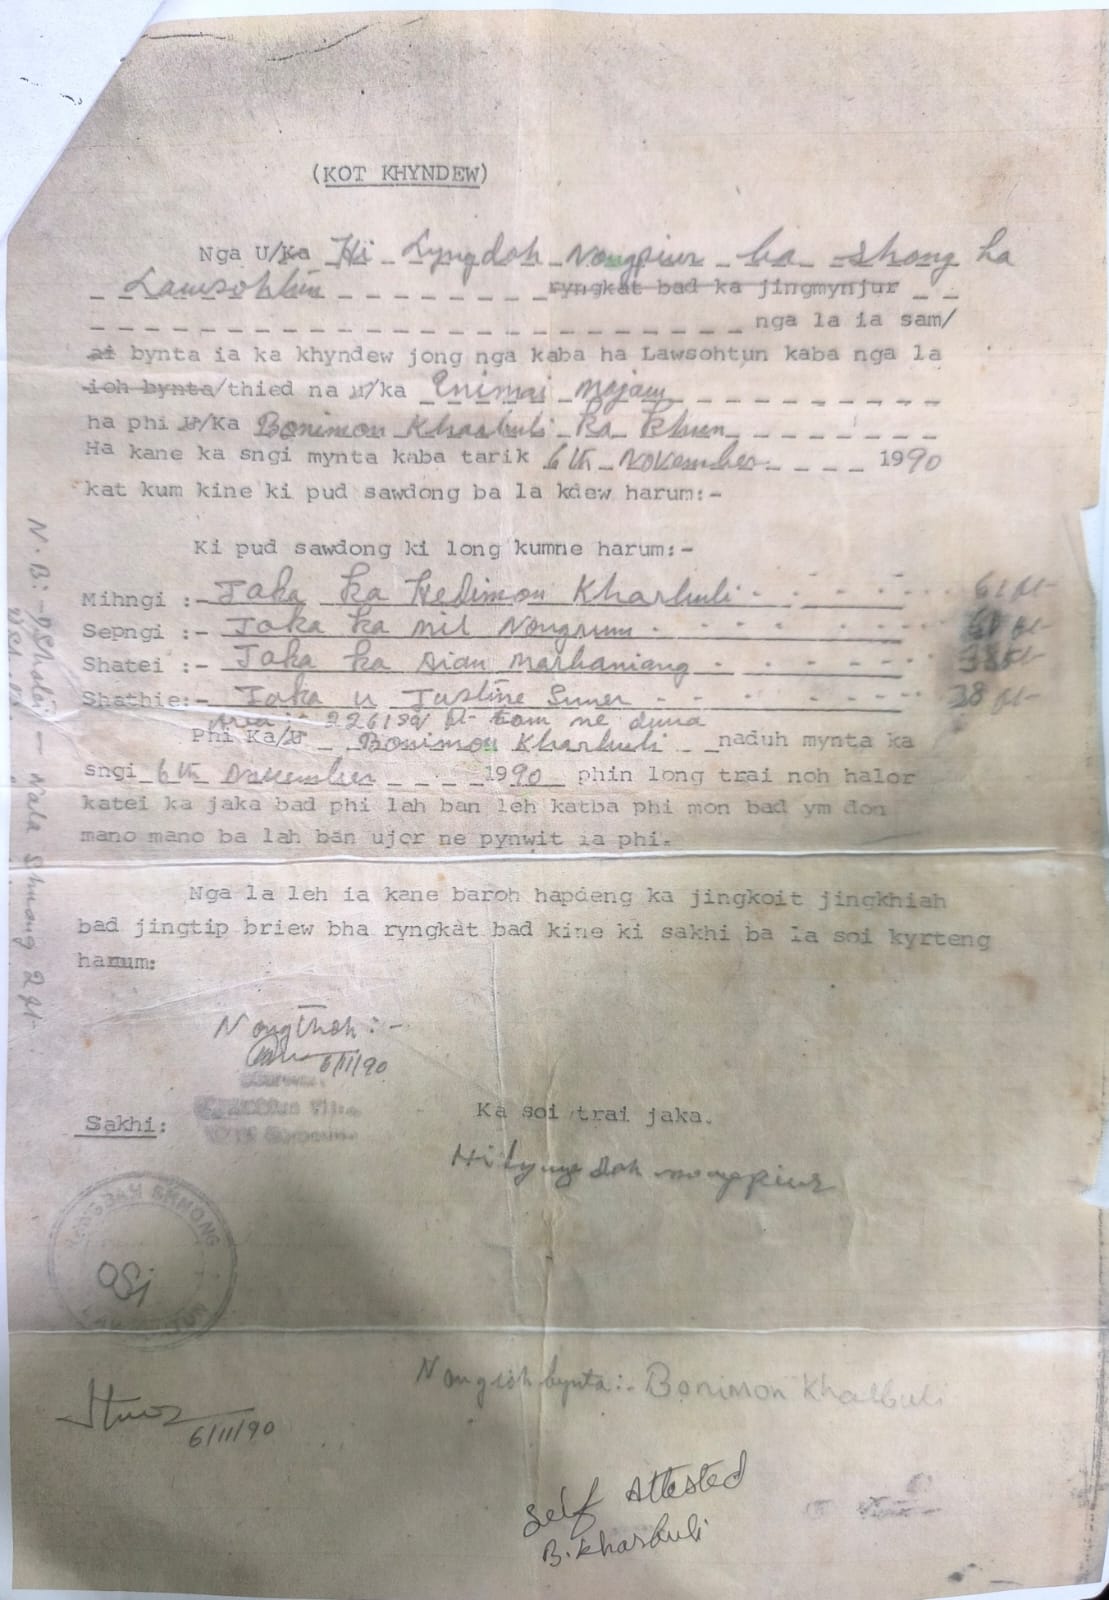 (KOT KHYNDEW)
Nga U/Ka Hi Lyngdoh Nongpiur ba shong ha
Lawsohtun ryngkat bad ka jingmynjur
nga la ia sam/
ai bynta ia ka khyndew jong nga kaba ha Lawsohtun kaba nga la
ioh bynta/thied na u/ka Enimai Mojaw
ha phi U/Ka Bonimon Kharbuli ka khun
Ha kane ka sngi mynta kaba tarik 6th November 1990
kat kum kine ki pud sawdong ba la kdew harum:-
Ki pud sawdong ki long kumne harum:-
Mihngi :- Jaka ka Hedimon Kharbuli 61 ft-
Sepngi :- Jaka ka Nil Nongrum ft-
Shatei :- Jaka ka Aian Marbaniang 38 ft-
Shathie:- Jaka u Justine Suner 38 ft-
Area :- ft- tam ne duna
Phi Ka/U Bonimon Kharbuli naduh mynta ka
sngi 6th November 1990 phin long trai noh halor
katei ka jaka bad phi lah ban leh katba phi mon bad ym don
mano mano ba lah ban ujor ne pynwit ia phi.
Nga la leh ia kane baroh hapdeng ka jingkoit jingkhiah
bad jingtip briew bha ryngkat bad kine ki sakhi ba la soi kyrteng
harum:
N.B:- Shatei — Nala Shnong 2 ft-
Nongthoh :-
6/11/90
Sakhi:
Ka soi trai jaka.
Hi Lyngdoh Nongpiur
SHNONG
Nongioh bynta:- Bonimon Kharbuli
6/11/90
Self Attested
B. Kharbuli